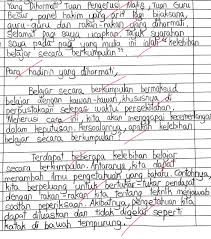 Yang Dihormati Tuan Pengerusi Majlis, Tuan Guru
Besar, panel hakim yang arif lagi bijaksana,
guru-guru dan rakan-rakan yang dihormati.
Selamat pagi saya ucapkan. Tajuk syarahan
saya pada pagi yang mulia ini ialah "Kelebihan
belajar secara berkumpulan".
Para hadirin yang dihormati,
Belajar secara berkumpulan bermaksud
belajar dengan kawan-kawan, khususnya di
perpustakaan selepas waktu persekolahan.
cara ini, kita akan mencapai kecemerlangan
dalam keputusan. Persoalannya, apakah kelebihan
belajar secara berkumpulan?
Terdapat beberapa kelebihan belajar
secara berkumpulan. Antaranya, kita dapat
menambah ilmu pengetahuan yang baharu. Contohnya,
kita berpeluang untuk bertukar-tukar pendapat
dengan rakan-rakan kita tentang teknik menjawab
soalan peperiksaan. Akibatnya, pengetahuan kita
dapat diluaskan dan tidak digelar seperti
katak di bawah tempurung.